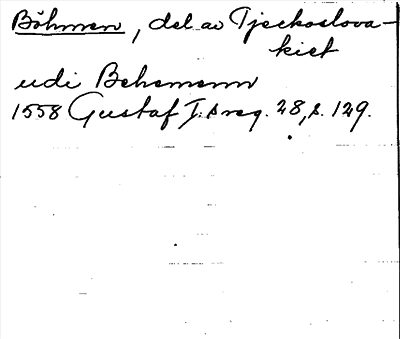 Böhmen, del av Tjeckoslova-
kiet
udi Behemenn
1558 Gustaf I:s reg. 28, s. 129.